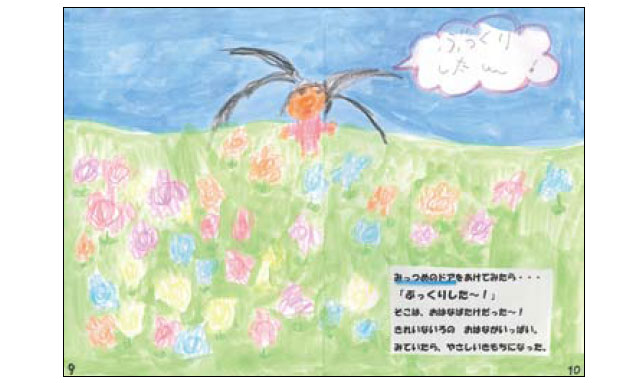 ぶっくり
した〜！
みっつめのドアをあけてみたら・・・
「ぶっくりした〜！」
そこは、おはなばたけだった〜！
きれいないろの　おはながいっぱい。
みていたら、やさしいきもちになった。
9
10